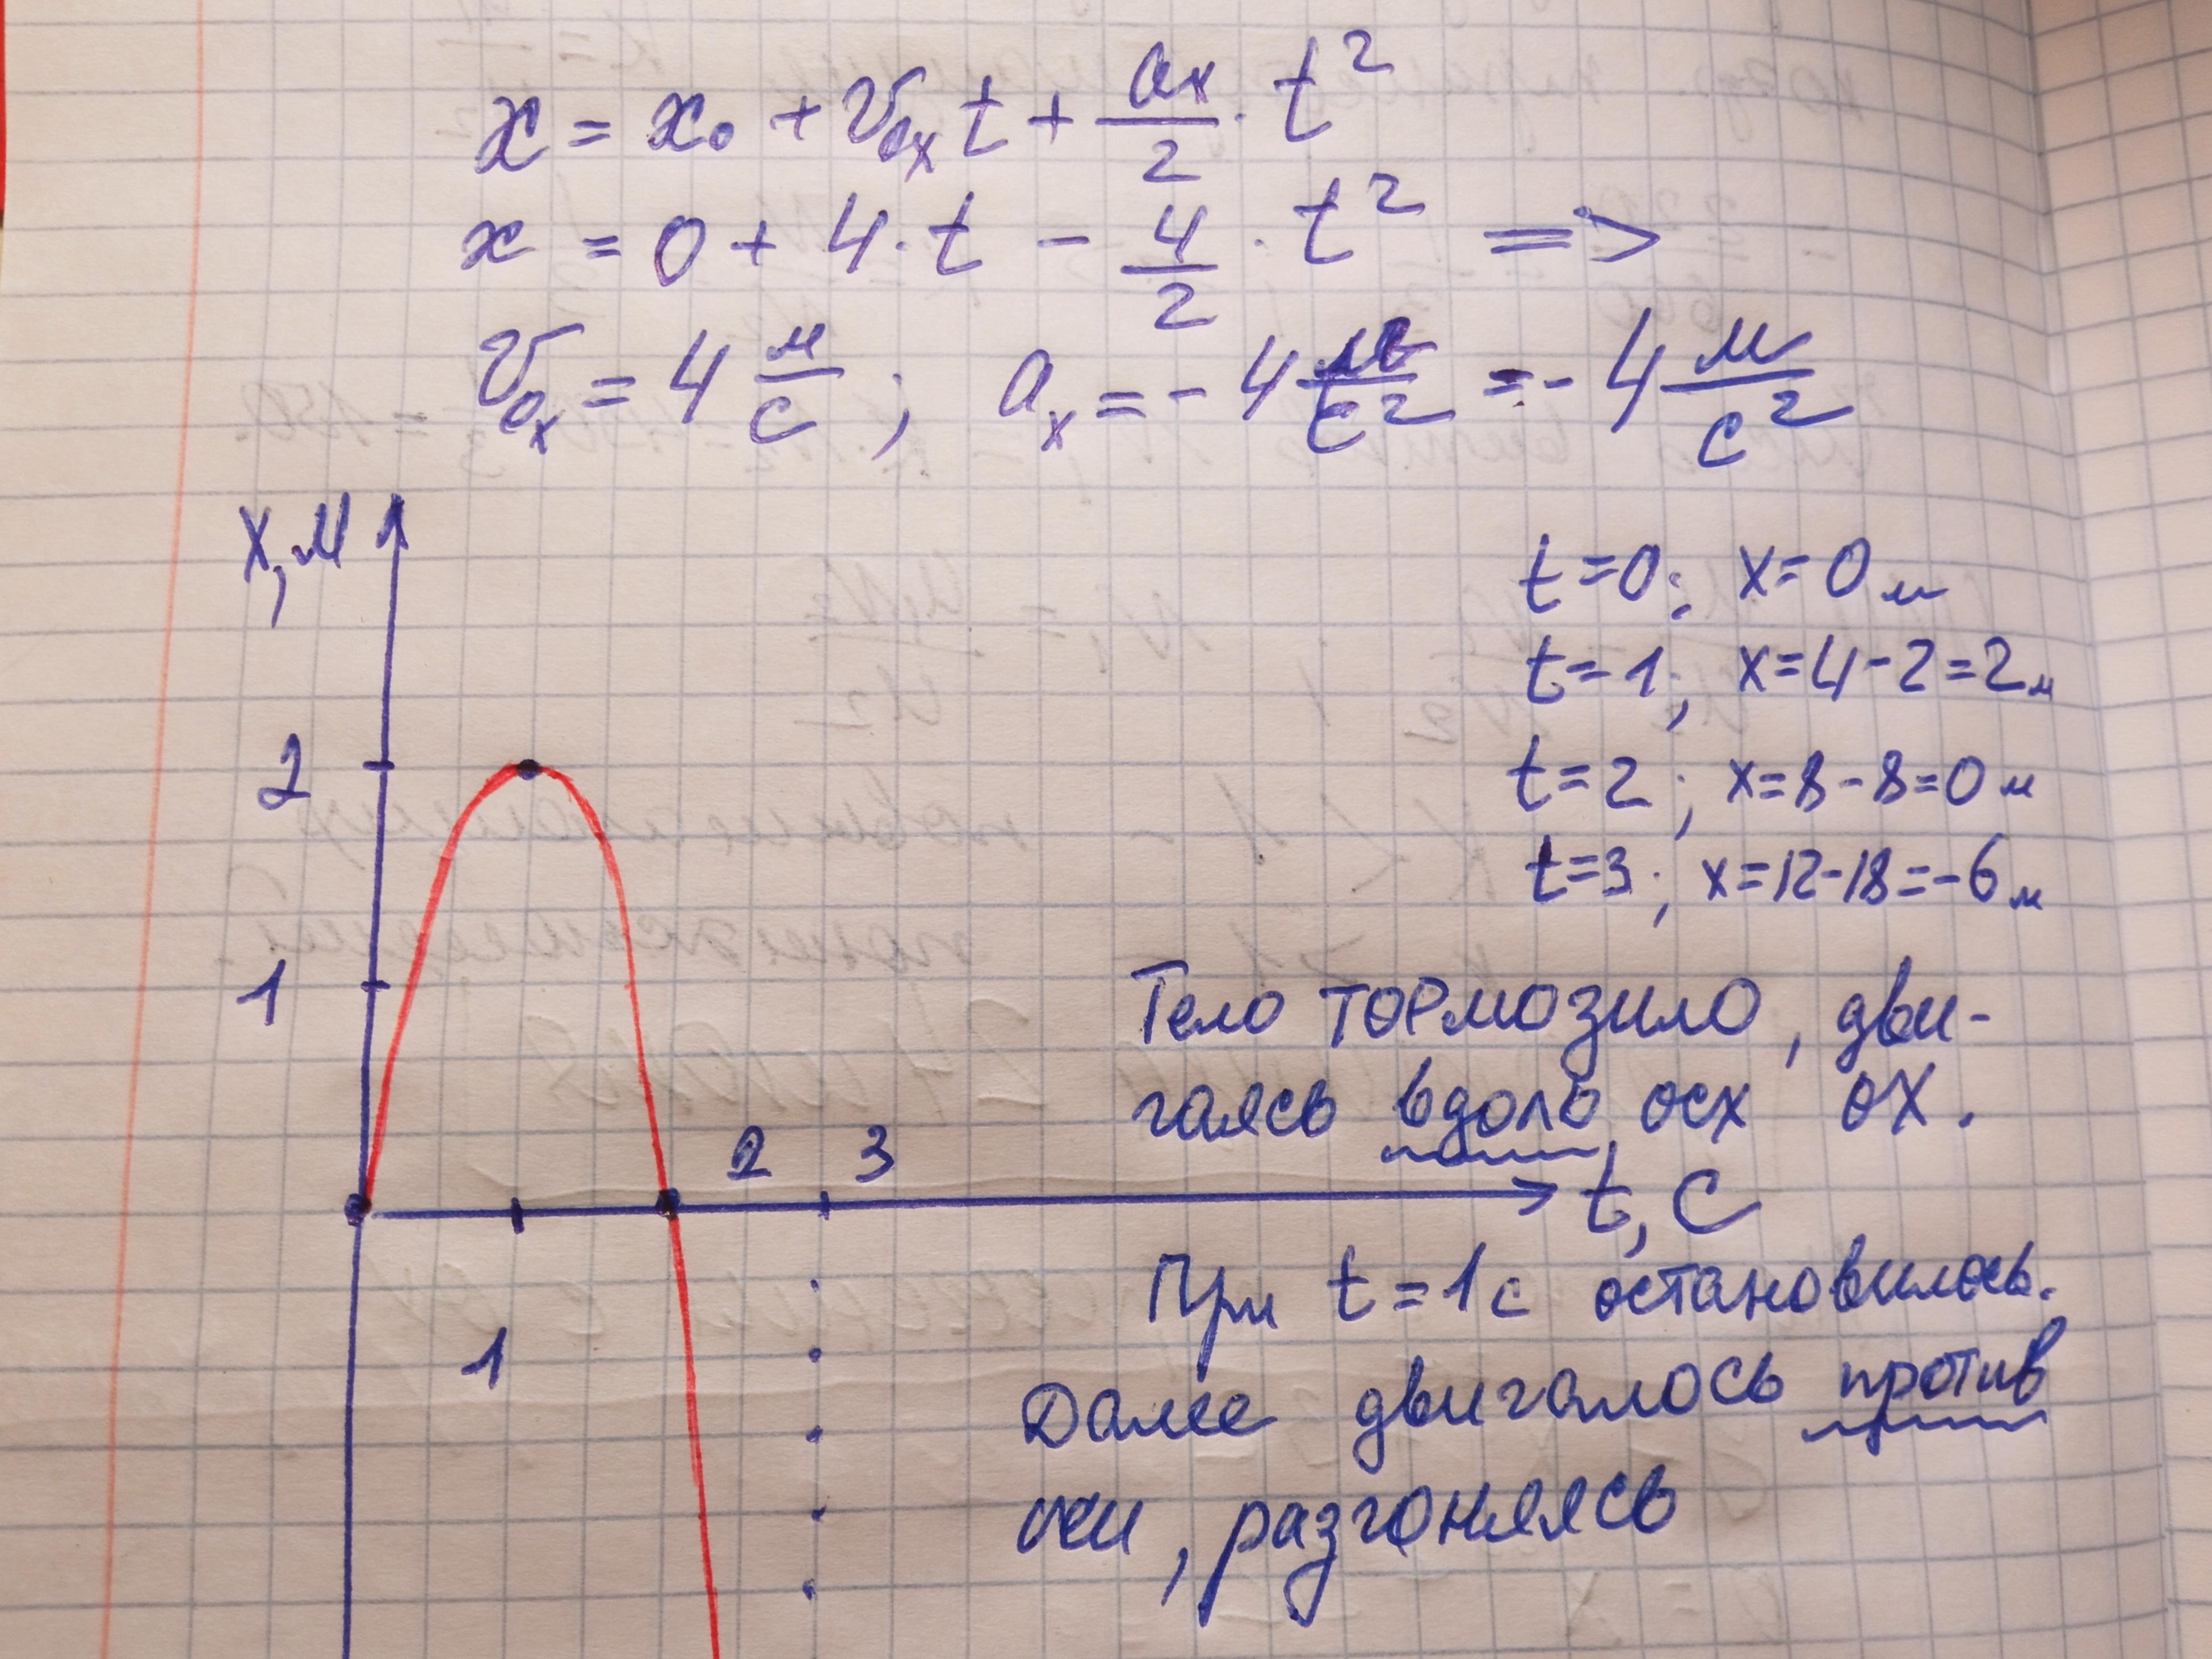 x = x₀ + v₀ₓt + aₓ/2 · t²
x = 0 + 4·t - 4/2 · t² =>
v₀ₓ = 4 м/с ; aₓ = - 4 м/с² = - 4 м/с²
x, м
t=0; x=0 м
t=1; x=4-2=2 м
2
t=2; x=8-8=0 м
t=3; x=12-18=-6 м
1
Тело тормозило, дви-
гаясь вдоль осх ох.
2 3
t, c
При t=1c остановилось.
1
Далее двигалось против
оси, разгоняясь